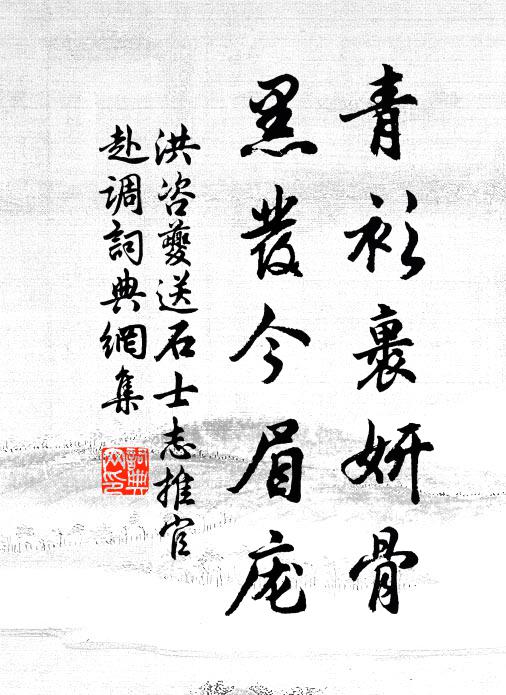 青衫裹妍骨
黑發今眉庞
洪咨夔送石士志推官
赴调詞典網集